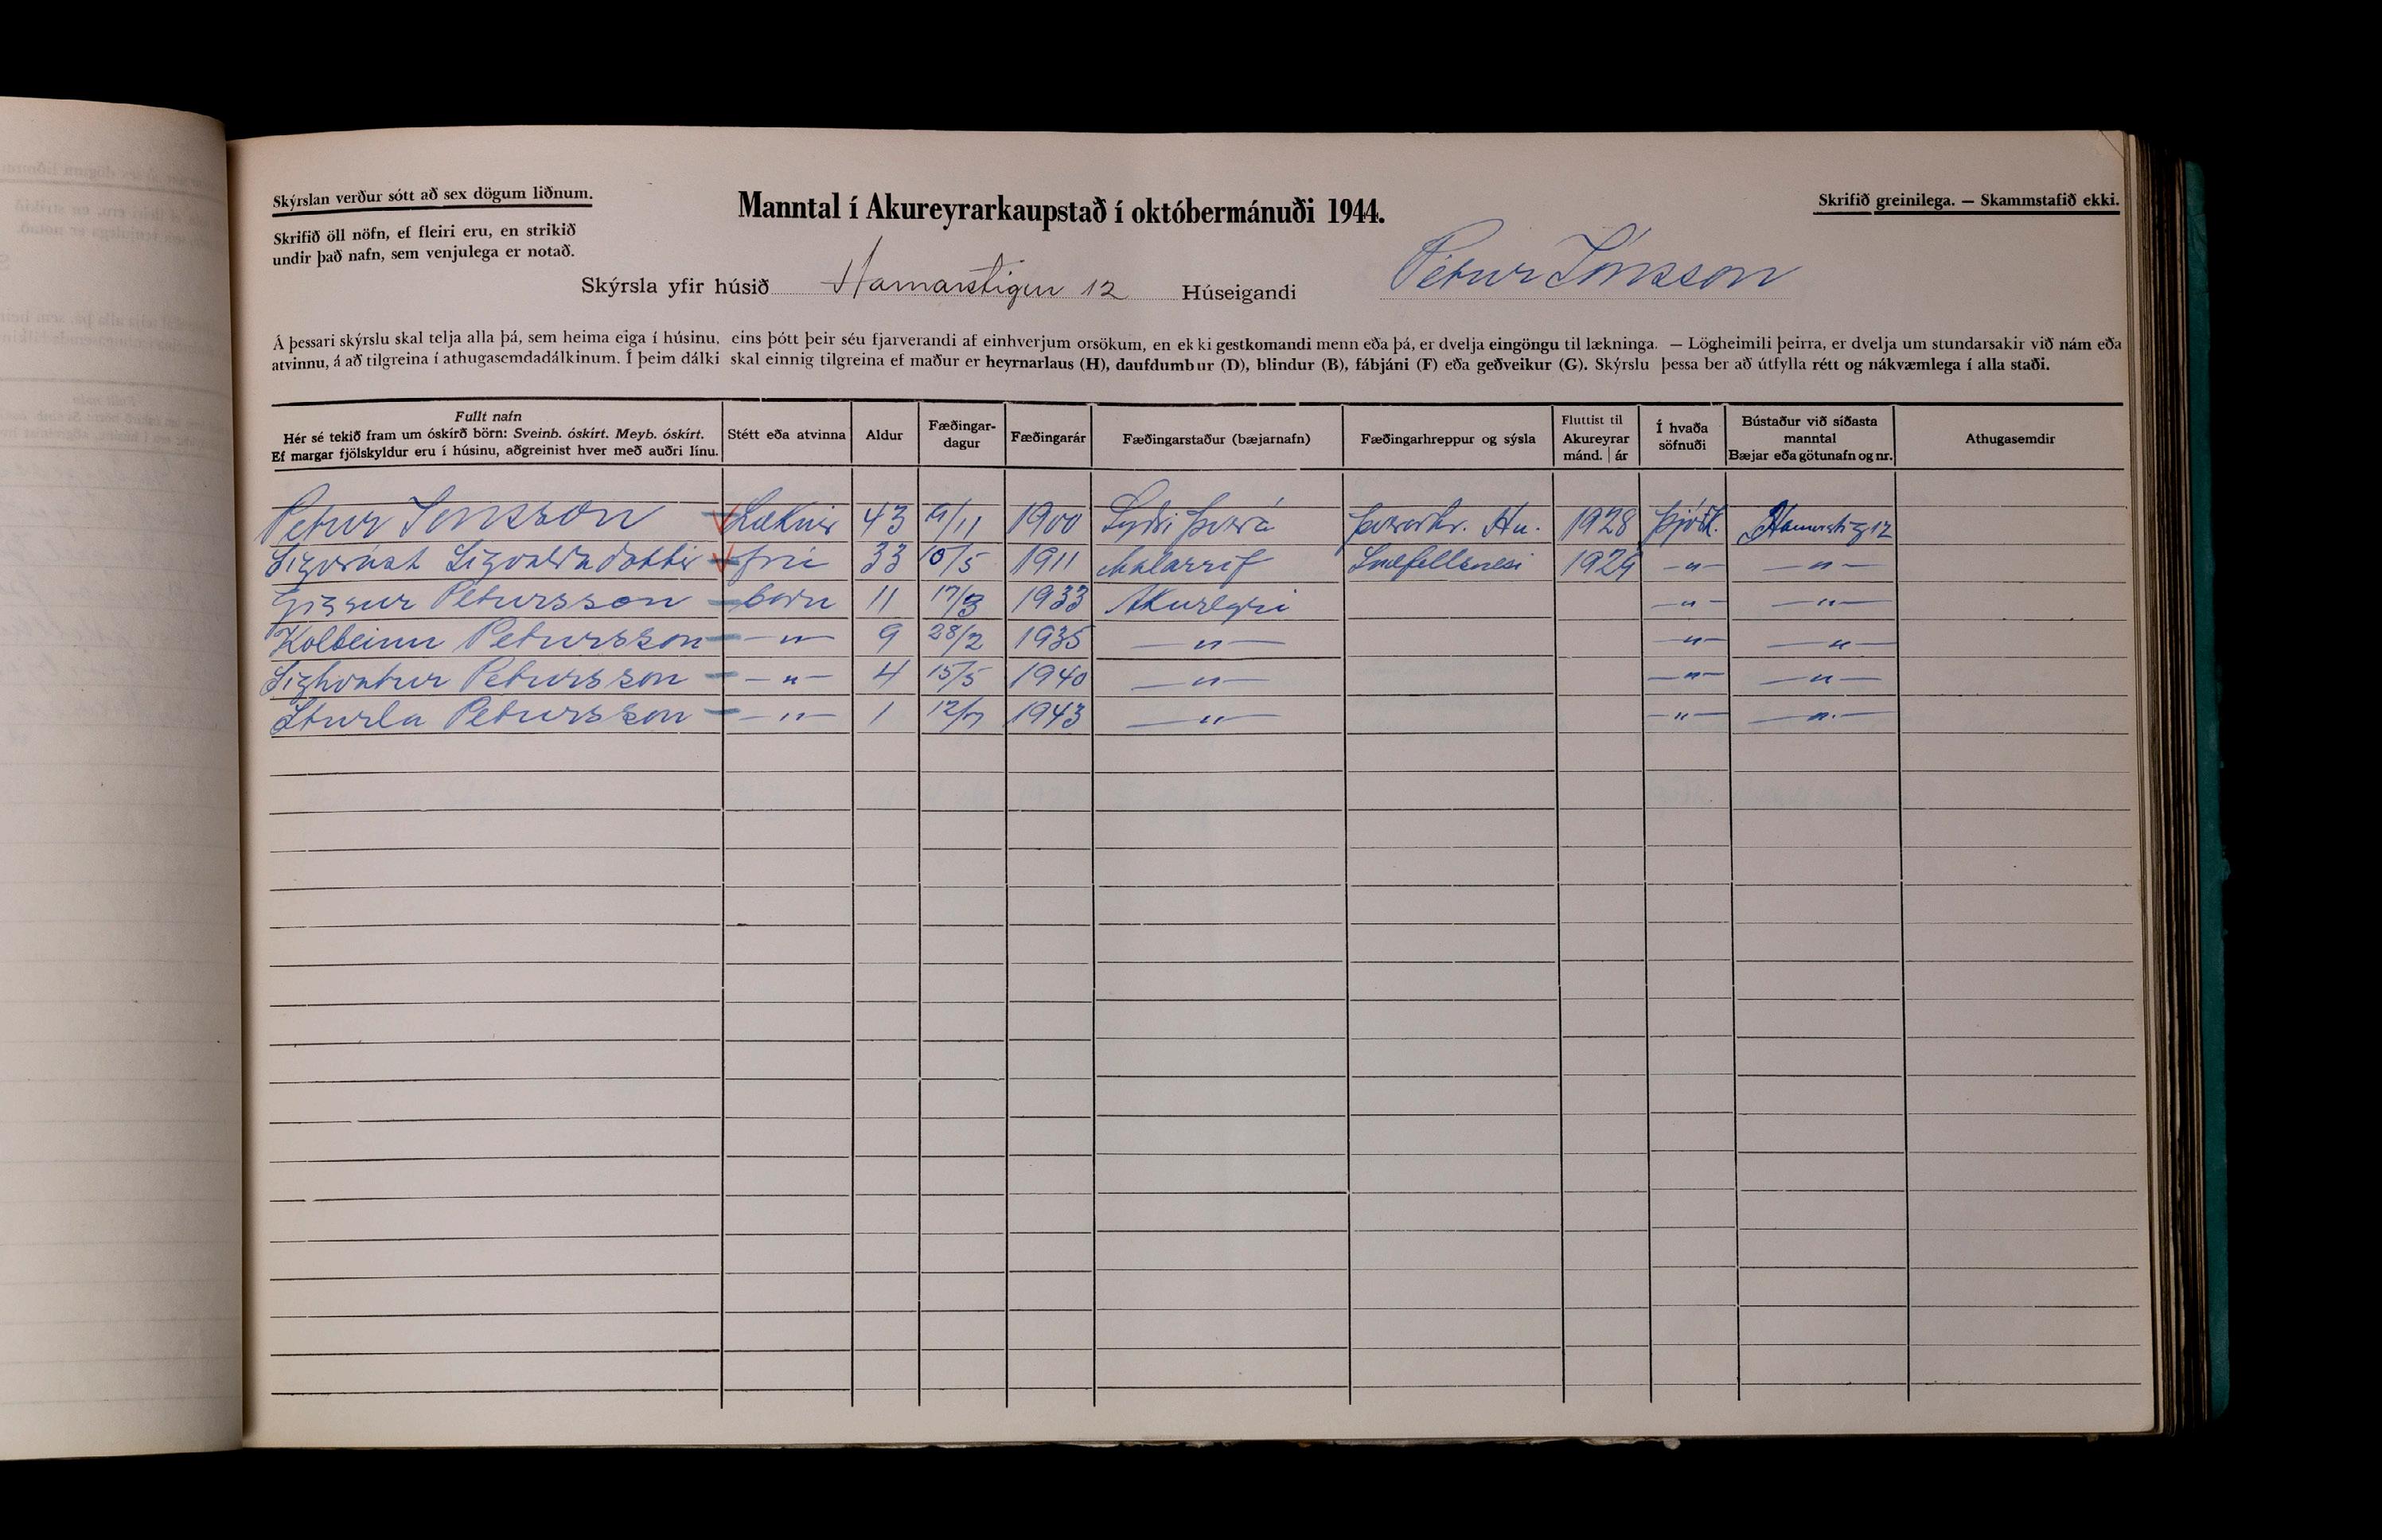 Skýrslan verður sótt að sex dögum liðnum.
Skrifið öll nöfn, ef fleiri eru, en strikið
undir það nafn, sem venjulega er notað.
Manntal í Akureyrarkaupstað í októbermánuði 1944.
Skrifið greinilega. — Skammstafið ekki.
Skýrsla yfir húsið Hamarstígur 12 Húseigandi Pétur Jónsson
Á þessari skýrslu skal telja alla þá, sem heima eiga í húsinu, eins þótt þeir séu fjarverandi af einhverjum orsökum, en ekki gestkomandi menn eða þá, er dvelja eingöngu til lækninga. — Lögheimili þeirra, er dvelja um stundarsakir við nám eða
atvinnu, á að tilgreina í athugasemdadálkinum. Í þeim dálki skal einnig tilgreina ef maður er heyrnarlaus (H), daufdumbur (D), blindur (B), fábjáni (F) eða geðveikur (G). Skýrslu þessa ber að útfylla rétt og nákvæmlega í alla staði.
Fullt nafn
Hér sé tekið fram um óskírð börn: Sveinb. óskírt. Meyb. óskírt.
Ef margar fjölskyldur eru í húsinu, aðgreinist hver með auðri línu.
Stétt eða atvinna
Aldur
Fæðingar-
dagur
Fæðingarár
Fæðingarstaður (bæjarnafn)
Fæðingarhreppur og sýsla
Fluttist til
Akureyrar
mánd. | ár
Í hvaða
söfnuði
Bústaður við síðasta
manntal
Bæjar eða götunafn og nr.
Athugasemdir
Petur Jonsson Læknir 43 /11 1900 Syðri Þverá Þverarhr. Hu. 1928 Þjóðk. Hamarstig 12
Sigvaldadottir frú 33 10/5 1911 Malarrif Snæfellsnesi 1929 -"- -"-
Gissur Petursson börn 11 17/3 1933 Akureyri -"- -"-
Kolbeinn Petursson -"- 9 28/2 1935 -"- -"- -"-
Sighvatur Petursson -"- 4 15/5 1940 -"- -"- -"-
Sturla Petursson -"- 1 12/7 1943 -"- -"- -"-